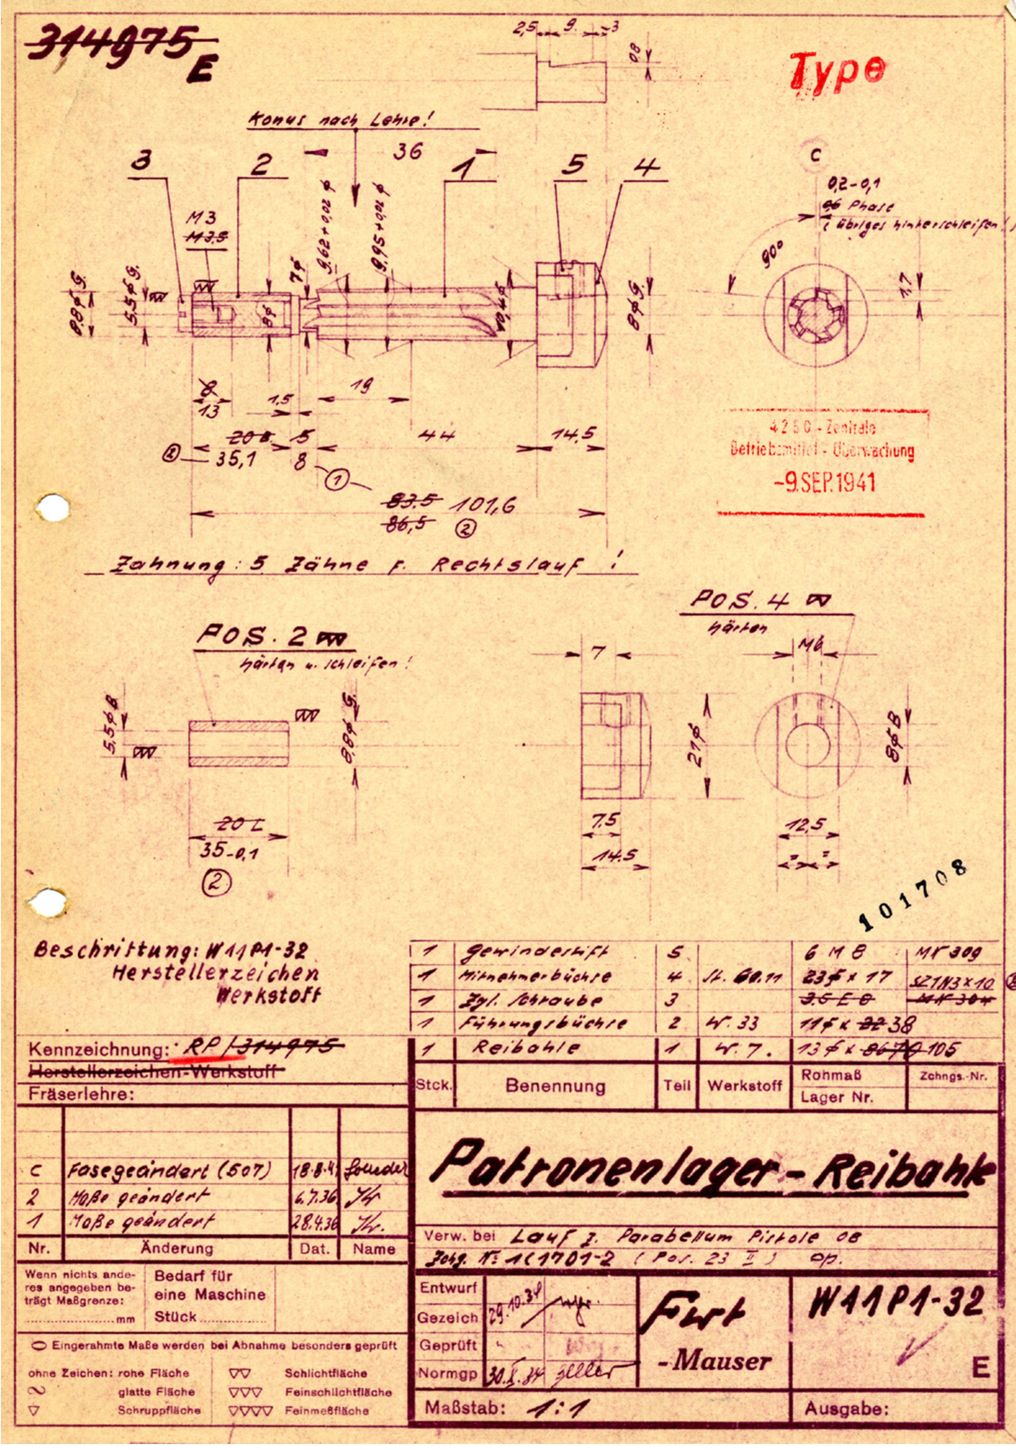 314975
E
Type
2,5 9 3
08
Konus nach Lehre!
36
3 2 1 5 4
C
0,2-0,1
0,6 Phase
(übriges hinterschleifen!)
90°
M3
M3.5
8.8ϕ G.
5.5ϕ G.
8ϕ
7ϕ
9,62+0,02 ϕ
9,95+0,02 ϕ
10,4ϕ
8ϕ G.
1.7
8
13
1.5
19
20 5 44 14.5
② 35,1 8 ①
83.5 101,6
86,5 ②
4250 - Zentrale
Betriebsmittel - Überwachung
-9.SEP.1941
Zahnung: 5 Zähne f. Rechtslauf !
POS. 2
härten u. schleifen!
5.5ϕ B
8,8ϕ G.
20
35-0,1
②
POS. 4
härten
7
M6
21ϕ
8ϕ B
7.5
14.5
12,5
101708
Beschriftung: W11P1-32
Herstellerzeichen
Werkstoff
1 Gewindestift 5 6 M 8 MN 309
1 Mitnehmerbüchse 4 St. 60.11 23ϕ x 17 SZ1N3x10
1 Zyl. Schraube 3 3.5 E 8 MN 304
1 Führungsbüchse 2 W. 33 11ϕ x 22 38
1 Reibahle 1 W. 7. 13ϕ x 86 70 105
Stck. Benennung Teil Werkstoff Rohmaß Zchngs.-Nr.
Lager Nr.
Kennzeichnung: RP/314975
Herstellerzeichen-Werkstoff
Fräserlehre:
C Fase geändert (507) 18.8.41
2 Maße geändert 6.7.36
1 Maße geändert 28.4.36
Nr. Änderung Dat. Name
Patronenlager - Reibahle
Verw. bei Lauf z. Parabellum Pistole 08
Zchg. No 1C1701-2 (Pos. 23 II) op.
Wenn nichts ande-
res angegeben be-
trägt Maßgrenze:
mm
Bedarf für
eine Maschine
Stück
Entwurf
Gezeich 29.10.34
Geprüft
Normgp 30.X.34
Fwt
-Mauser
W11P1-32
E
Eingerahmte Maße werden bei Abnahme besonders geprüft
ohne Zeichen: rohe Fläche ▽▽ Schlichtfläche
~ glatte Fläche ▽▽▽ Feinschlichtfläche
▽ Schruppfläche ▽▽▽▽ Feinmeßfläche
Maßstab: 1:1
Ausgabe: